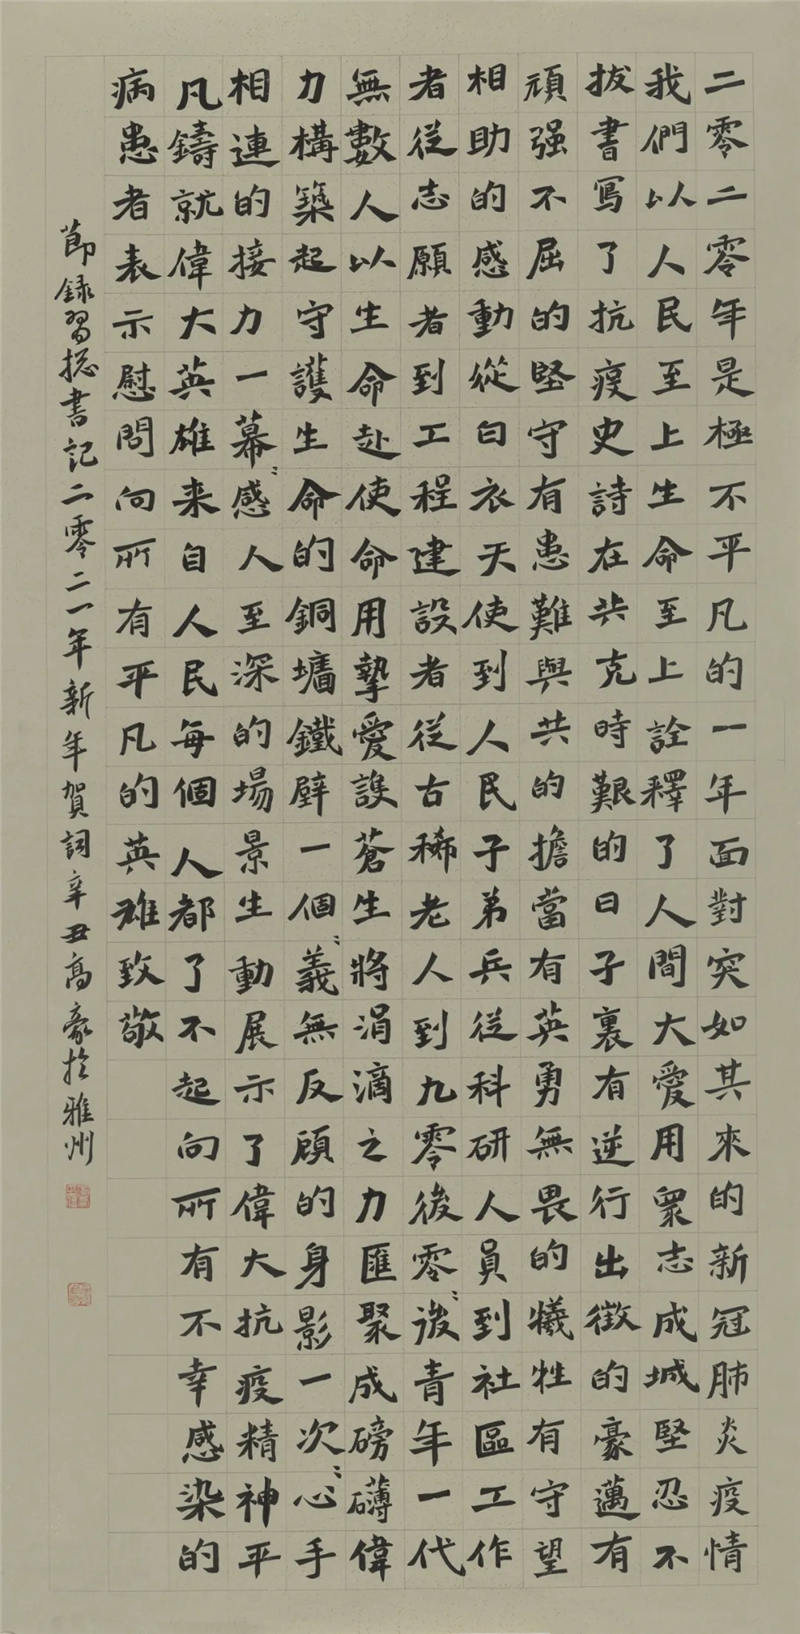 二零二零年是極不平凡的一年面對突如其來的新冠肺炎疫情
我們以人民至上生命至上詮釋了人間大愛用眾志成城堅忍不
拔書寫了抗疫史詩在共克時艱的日子裏有逆行出徵的豪邁有
頑强不屈的堅守有患難與共的擔當有英勇無畏的犧牲有守望
相助的感動從白衣天使到人民子弟兵從科研人員到社區工作
者從志願者到工程建設者從古稀老人到九零後零〻後青年一代
無數人以生命赴使命用摯愛護蒼生將涓滴之力匯聚成磅礴偉
力構築起守護生命的銅墻鐵壁一個〻義無反顧的身影一次〻心手
相連的接力一幕〻感人至深的場景生動展示了偉大抗疫精神平
凡鑄就偉大英雄来自人民每個人都了不起向所有不幸感染的
病患者表示慰問向所有平凡的英雄致敬
節録習總書記二零二一年新年賀詞辛丑高豪於雅州